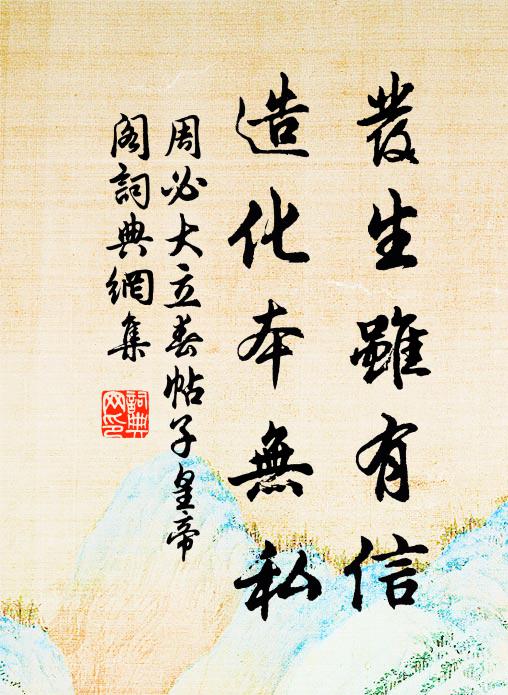 發生雖有信
造化本無私
周必大立春帖子皇帝
閣詞典網集
詞典网印